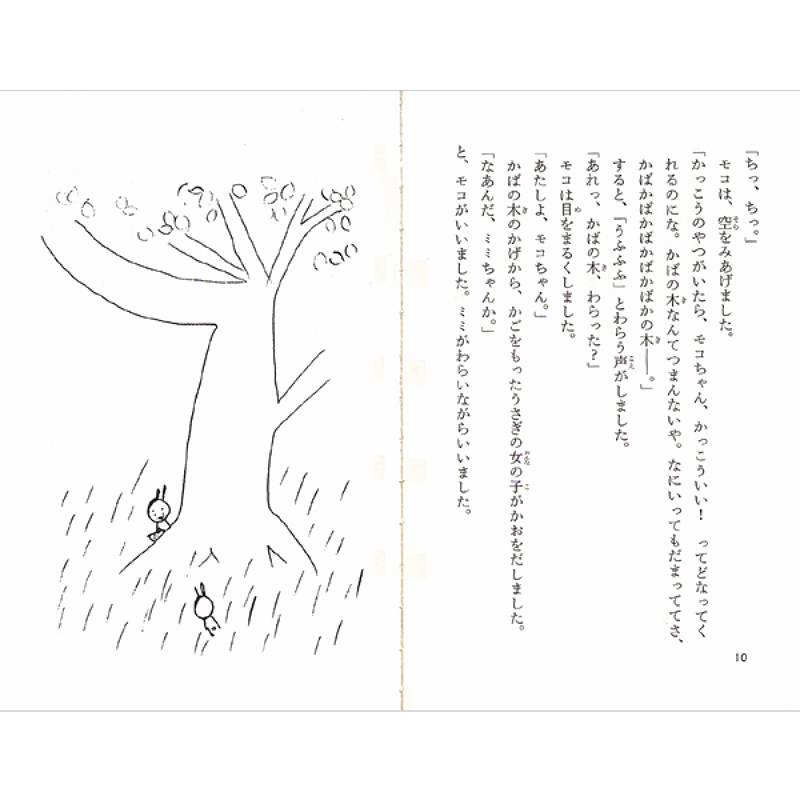 「ちっ、ちっ。」
モコは、空をみあげました。
「かっこうのやつがいたら、モコちゃん、かっこういい！　ってどなってく
れるのにな。かばの木なんてつまんないや。なにいってもだまっててさ、
かばかばかばかばかばかの木――。」
すると、「うふふふ」とわらう声がしました。
「あれっ、かばの木、わらった？」
モコは目をまるくしました。
「あたしよ、モコちゃん。」
かばの木のかげから、かごをもったうさぎの女の子がかおをだしました。
「なあんだ、ミミちゃんか。」
と、モコがいいました。ミミがわらいながらいいました。
10